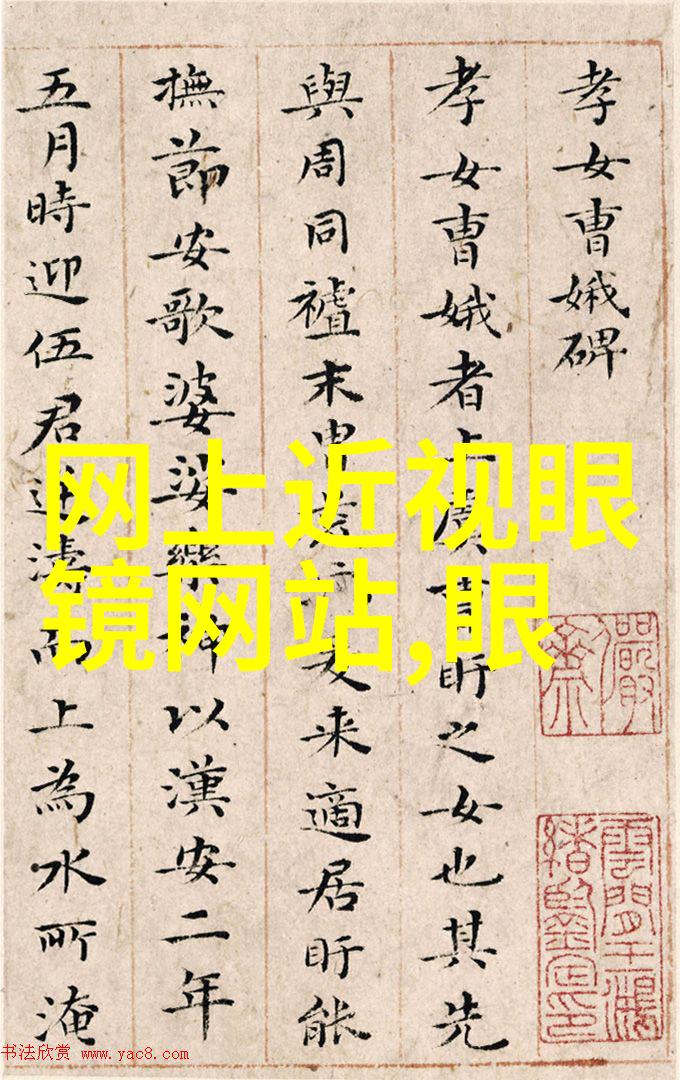 孝女曹娥碑
孝女曹娥者上虞曹盱之女也其先
與周同末來適居盱能
撫節安歌婆娑樂神以漢安二年
五月時迎伍君逆濤而上為水所淹
网上近视眼
镜网站,眼
书法欣赏 www.yac8.com